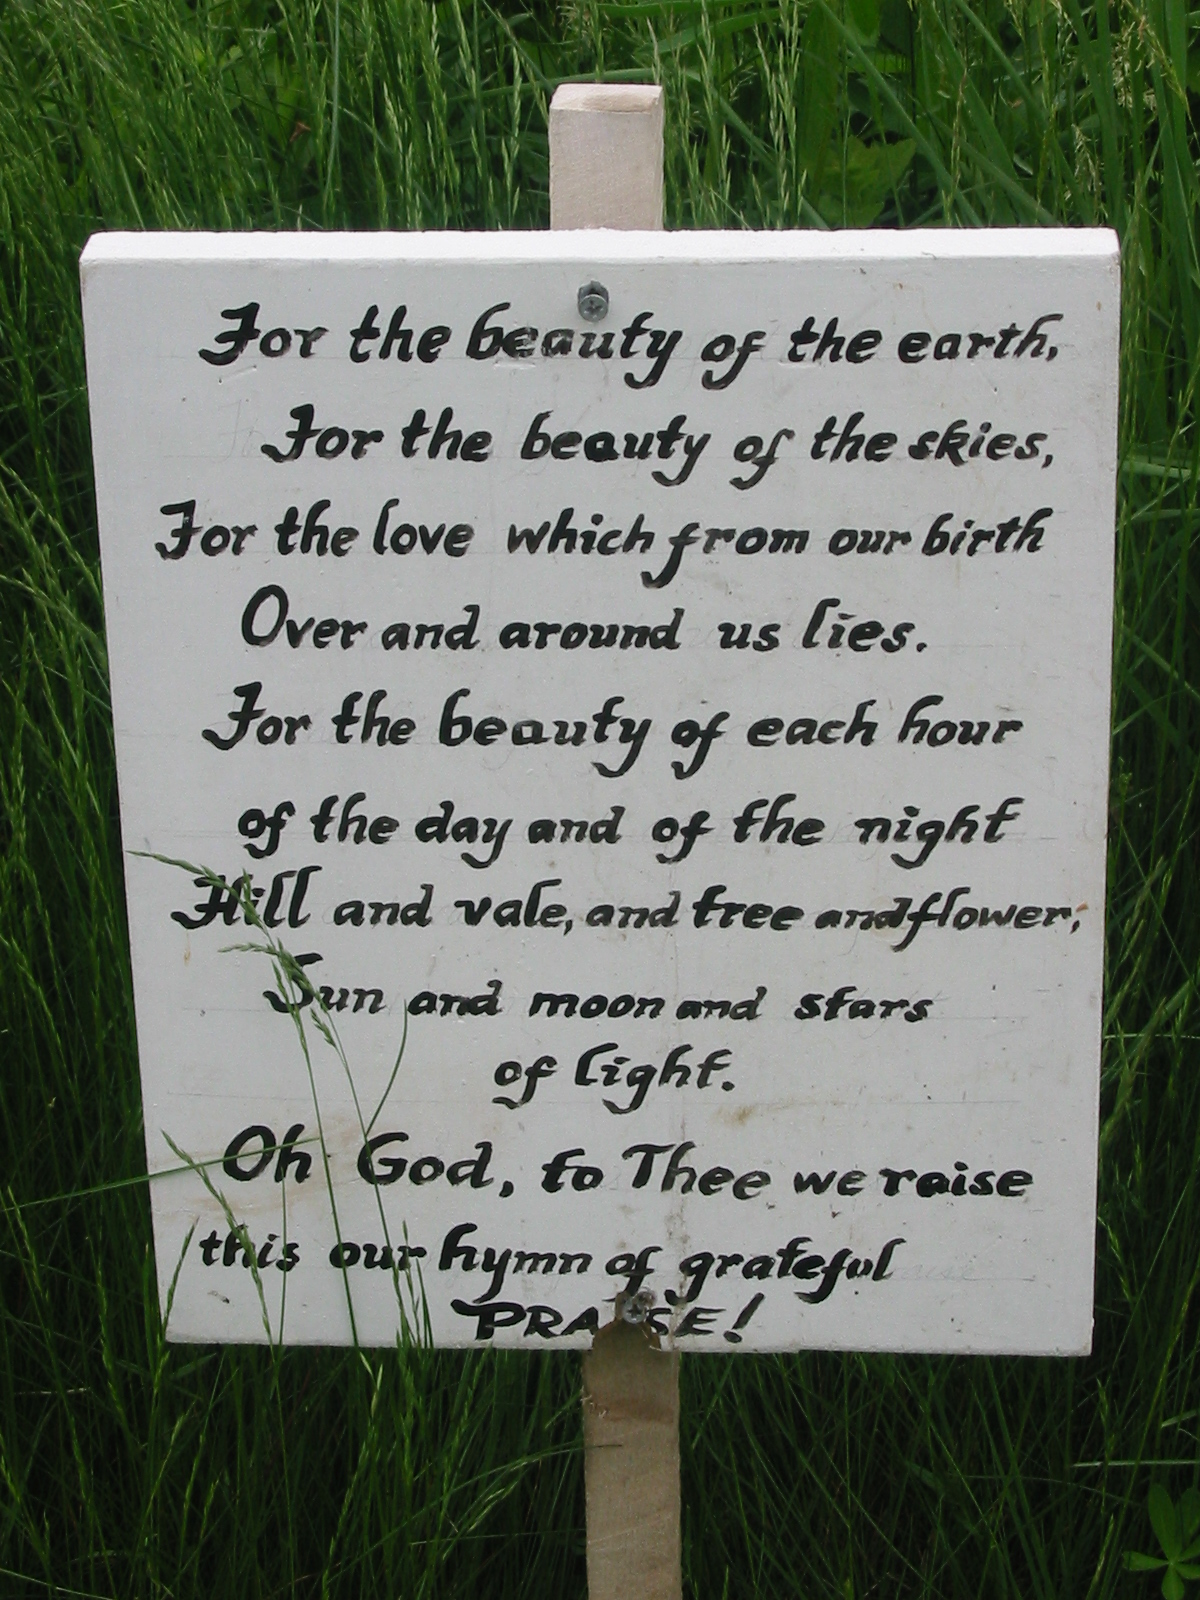 For the beauty of the earth,
For the beauty of the skies,
For the love which from our birth
Over and around us lies.
For the beauty of each hour
of the day and of the night
Hill and vale, and tree and flower,
Sun and moon and stars
of light.
Oh God, to Thee we raise
this our hymn of grateful
PRAISE!